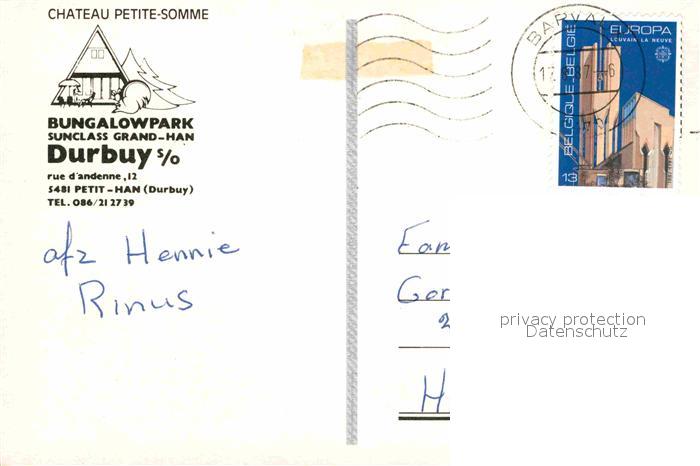 CHATEAU PETITE-SOMME
BUNGALOWPARK
SUNCLASS GRAND-HAN
Durbuy s/o
rue d'andenne, 12
5481 PETIT-HAN (Durbuy)
TEL. 086/21 2739
afz Hennie
Rinus
BARVA
EUROPA
LOUVAIN LA NEUVE
BELGIQUE-BELGIË
13
Fam
Gor
2
H
privacy protection
Datenschutz